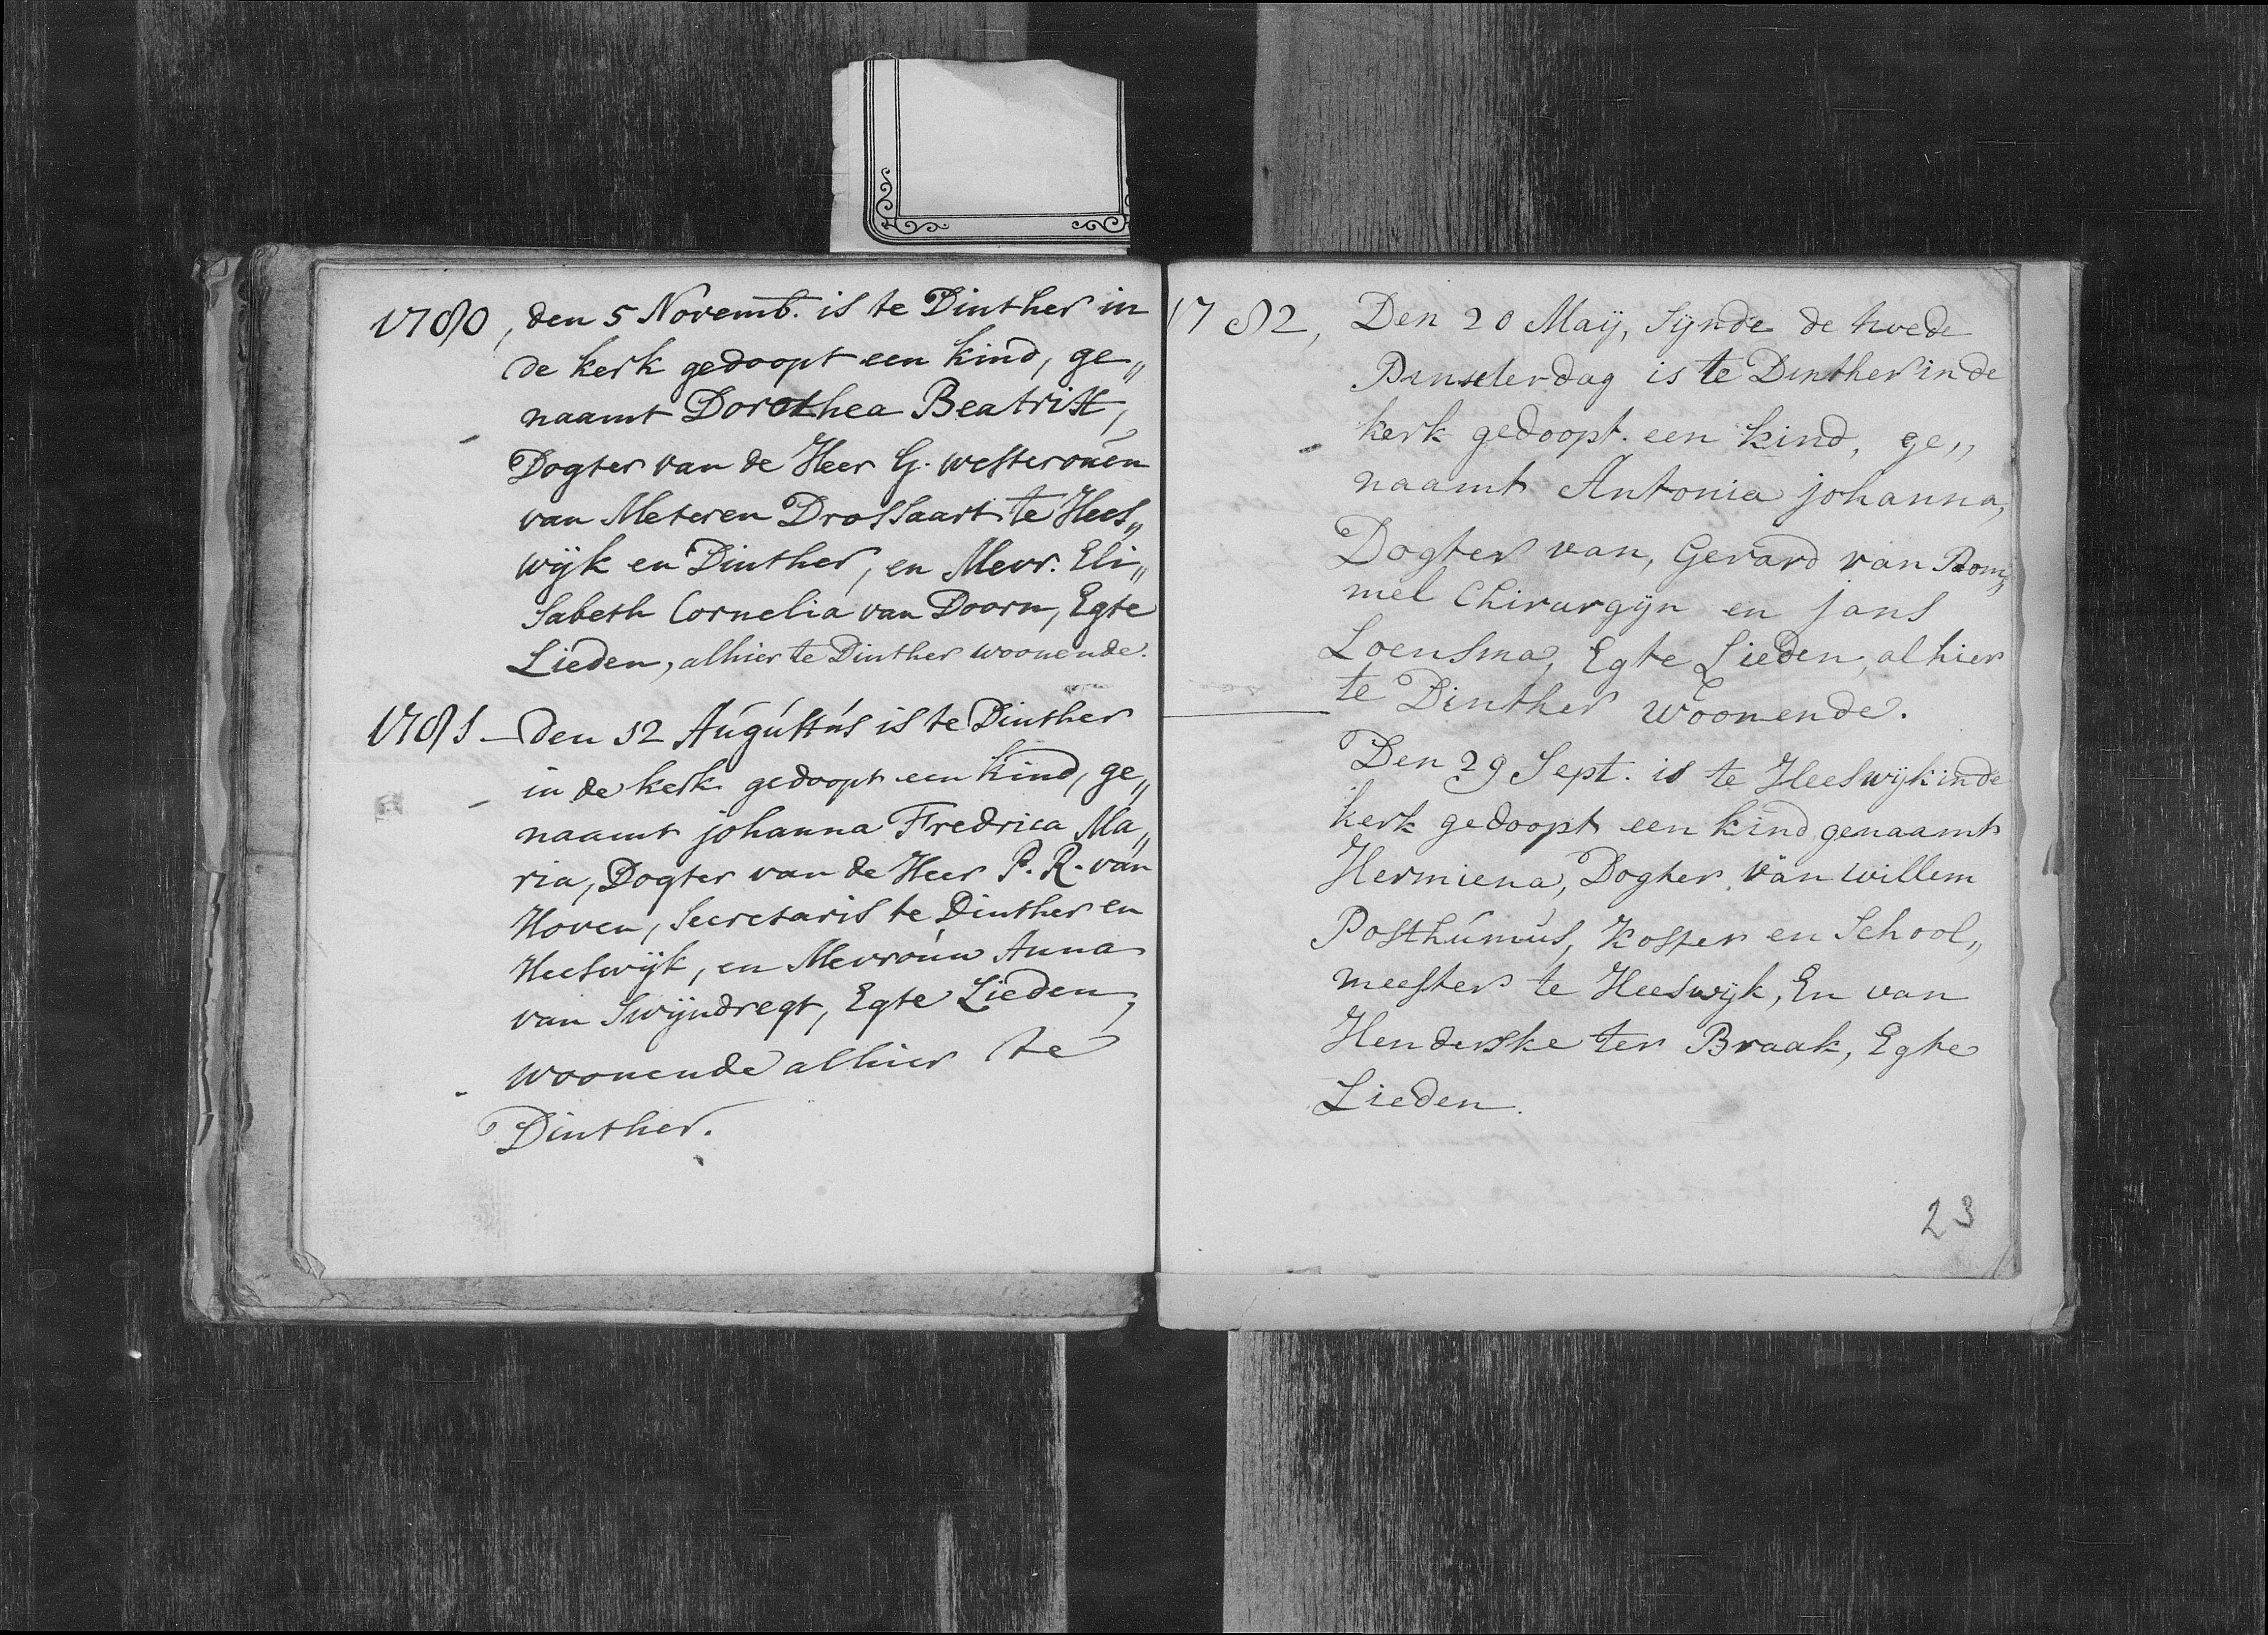 1780, den 5 Novemb. is te Dinther in
de kerk gedoopt een kind, ge„
naamt Dorothea Beatrix,
Dogter van de Heer G. westerouen
van Meteren Drossaart te Hees„
wijk en Dinther, en Mevr. Eli„
sabeth Cornelia van Doorn, Egte
Lieden, alhier te Dinther woonende.
1781 - den 12 Augustus is te Dinther
in de kerk gedoopt een kind, ge„
naamt johanna Fredrica Ma„
ria, Dogter van de Heer P. R. van
Hoven, Secretaris te Dinther en
Heeswijk, en Mevrouw Anna
van Swijndregt, Egte Lieden,
woonende alhier te
Dinther.
1782, Den 20 Maij, Sijnde de twede
Pinxterdag is te Dinther in de
kerk gedoopt een kind, ge„
naamt Antonia johanna,
Dogter van, Gerard van Rom„
mel Chirurgijn en jans
Loensma, Egte Lieden, alhier
te Dinther woonende.
Den 29 Sept. is te Heeswijk in de
kerk gedoopt een kind genaamt
Hermiena, Dogter van willem
Posthumus, Koster en School„
meester te Heeswijk, En van
Henderske ter Braak, Egte
Lieden.
23